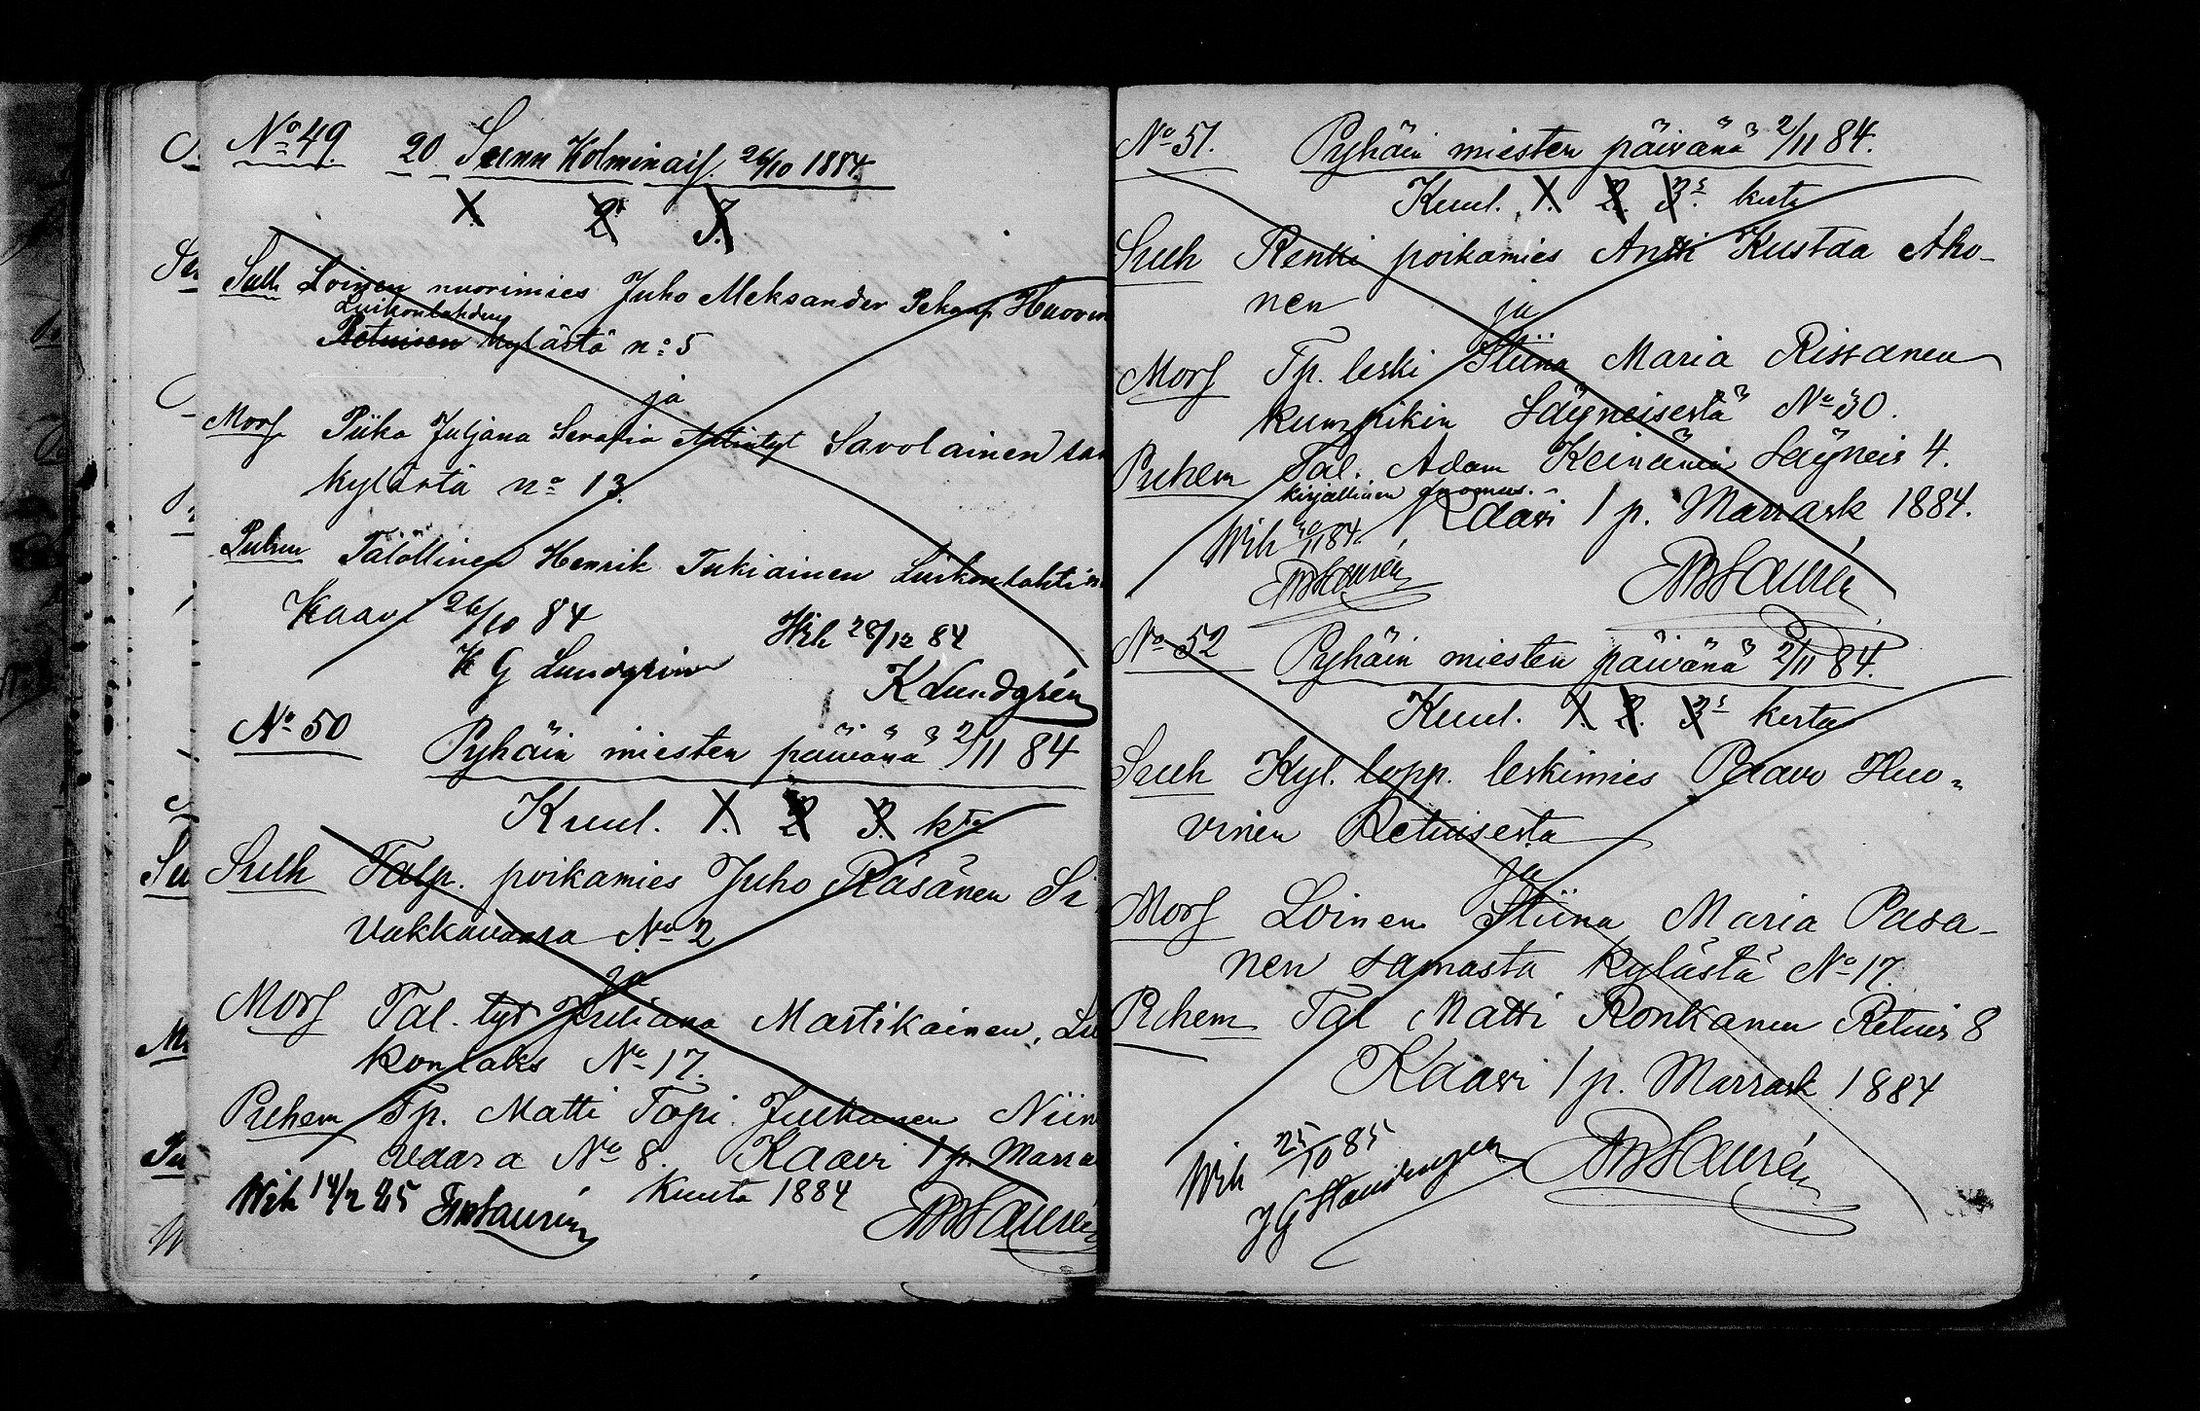 No 49. 20 Sunn Kolminais. 26/10 1884.
1. 2. 3.
Sulh Loinen nuorimies Juho Aleksander Pekanp. Huovin
Luikonlahden
Retuisen kylästä no 5
ja
Mors Piika Juljana Serafia Antintyt Savolainen sam
kylästä no 13.
Puhem Talollinen Henrik Tukiainen Luikonlahti
Kaavi 26/10 84
K G Lundgrén
Wih 28/12 84
K Lundgrén
No 50 Pyhäin miesten päivänä 2/11 84
Kuul. 1. 2. 3. kta
Sulh Talp. poikamies Juho Räsänen Si
vakkavaara No 2
ja
Mors Tal. tyt Juliana Martikainen, Lu
konlaks No 17.
Puhem Tp. Matti Tapi. Julkunen Niin
vaara No 8. Kaavi 1 p. Marras
kuuta 1884
Wih 14/2 85
No 51. Pyhäin miesten päivänä 2/11 84.
Kuul. 1. 2. 3s kerta
Sulh Renki poikamies Antti Kustaa Aho-
nen
ja
Mors Tp. leski Stiina Maria Rissanen
kumpikin Säyneisestä No 30.
Puhem Tal. Adam Keinänen Säyneis 4.
kirjallinen suomus.
Kaavi 1 p. Marrask 1884.
Wih 11 84.
No 52 Pyhäin miesten päivänä 2/11 84.
Kuul. 1. 2. 3s kerta
Sulh Kyl. lopp. leskimies Paavo Huo-
vinen Retuisesta
ja
Mors Loinen Stiina Maria Pasa-
nen samasta kylästä No 17.
Puhem Tal Matti Ronkanen Retuis 8
Kaavi 1 p. Marrask 1884
Wih 25/10 85